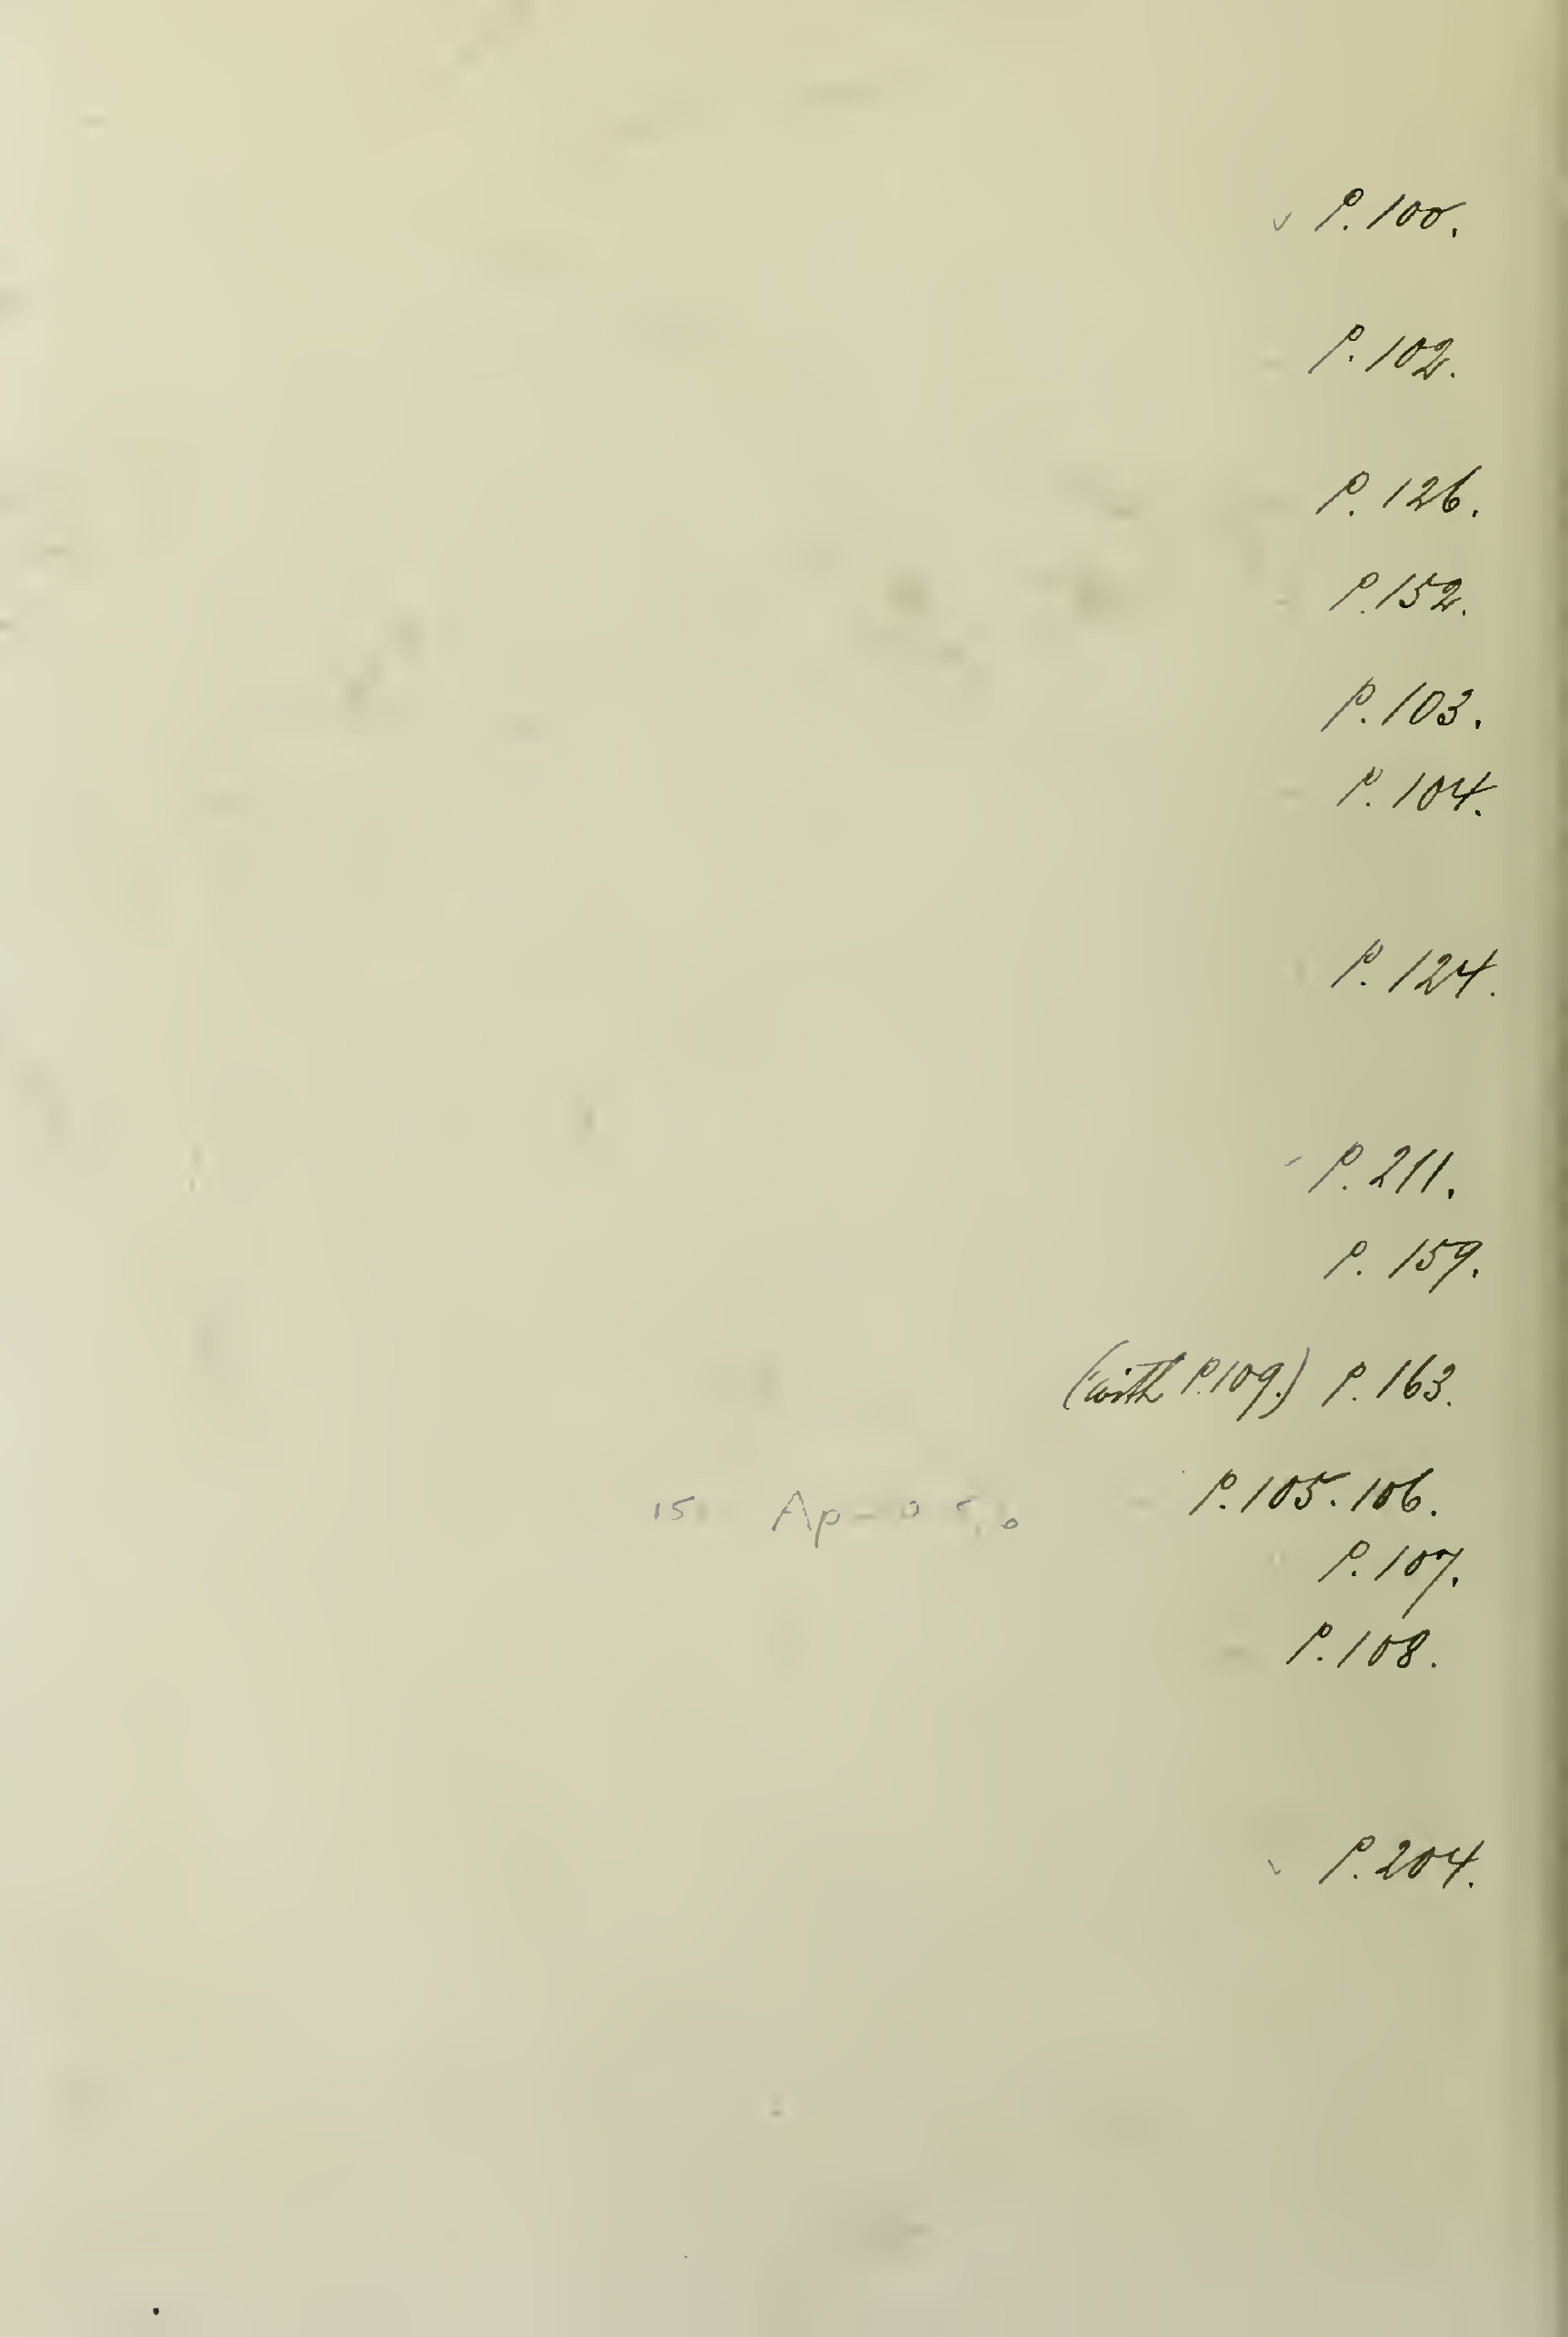 P. 100.
P. 102.
P. 126.
P. 152.
P. 103.
P. 104.
P. 124.
P. 211.
P. 159.
(with P. 109.) P. 163.
15 P. 105. 106.
P. 107.
P. 108.
P. 204.